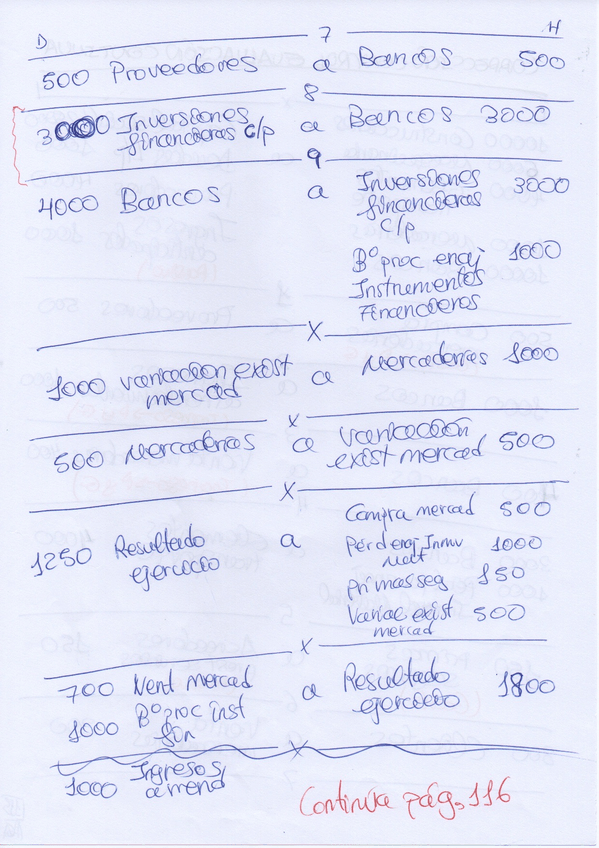 D 7 H
500 Proveedores a Bancos 500
8
3000 Inversiones a Bancos 3000
financieras c/p
9
4000 Bancos a Inversiones 3000
financieras
c/p
Bº proc enaj 1000
Instrumentos
Financieros
X
1000 variacion exist a Mercaderias 1000
mercad
x
500 Mercaderias a variación 500
exist mercad
X
Compra mercad 500
1250 Resultado a Perd enaj Inmv 1000
ejercicio Mat
primas seg 150
Variac exist 500
mercad
X
700 Vent mercad a Resultado 1800
ejercicio
1000 Bº proc inst
fin
X
1000 Ingresos
arrend
Continúa pág. 116